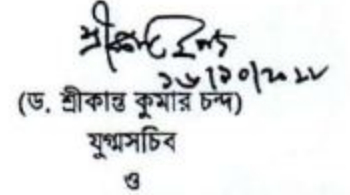 ১৬/১০/২০১৮
(ড. শ্রীকান্ত কুমার চন্দ)
যুগ্মসচিব
ও